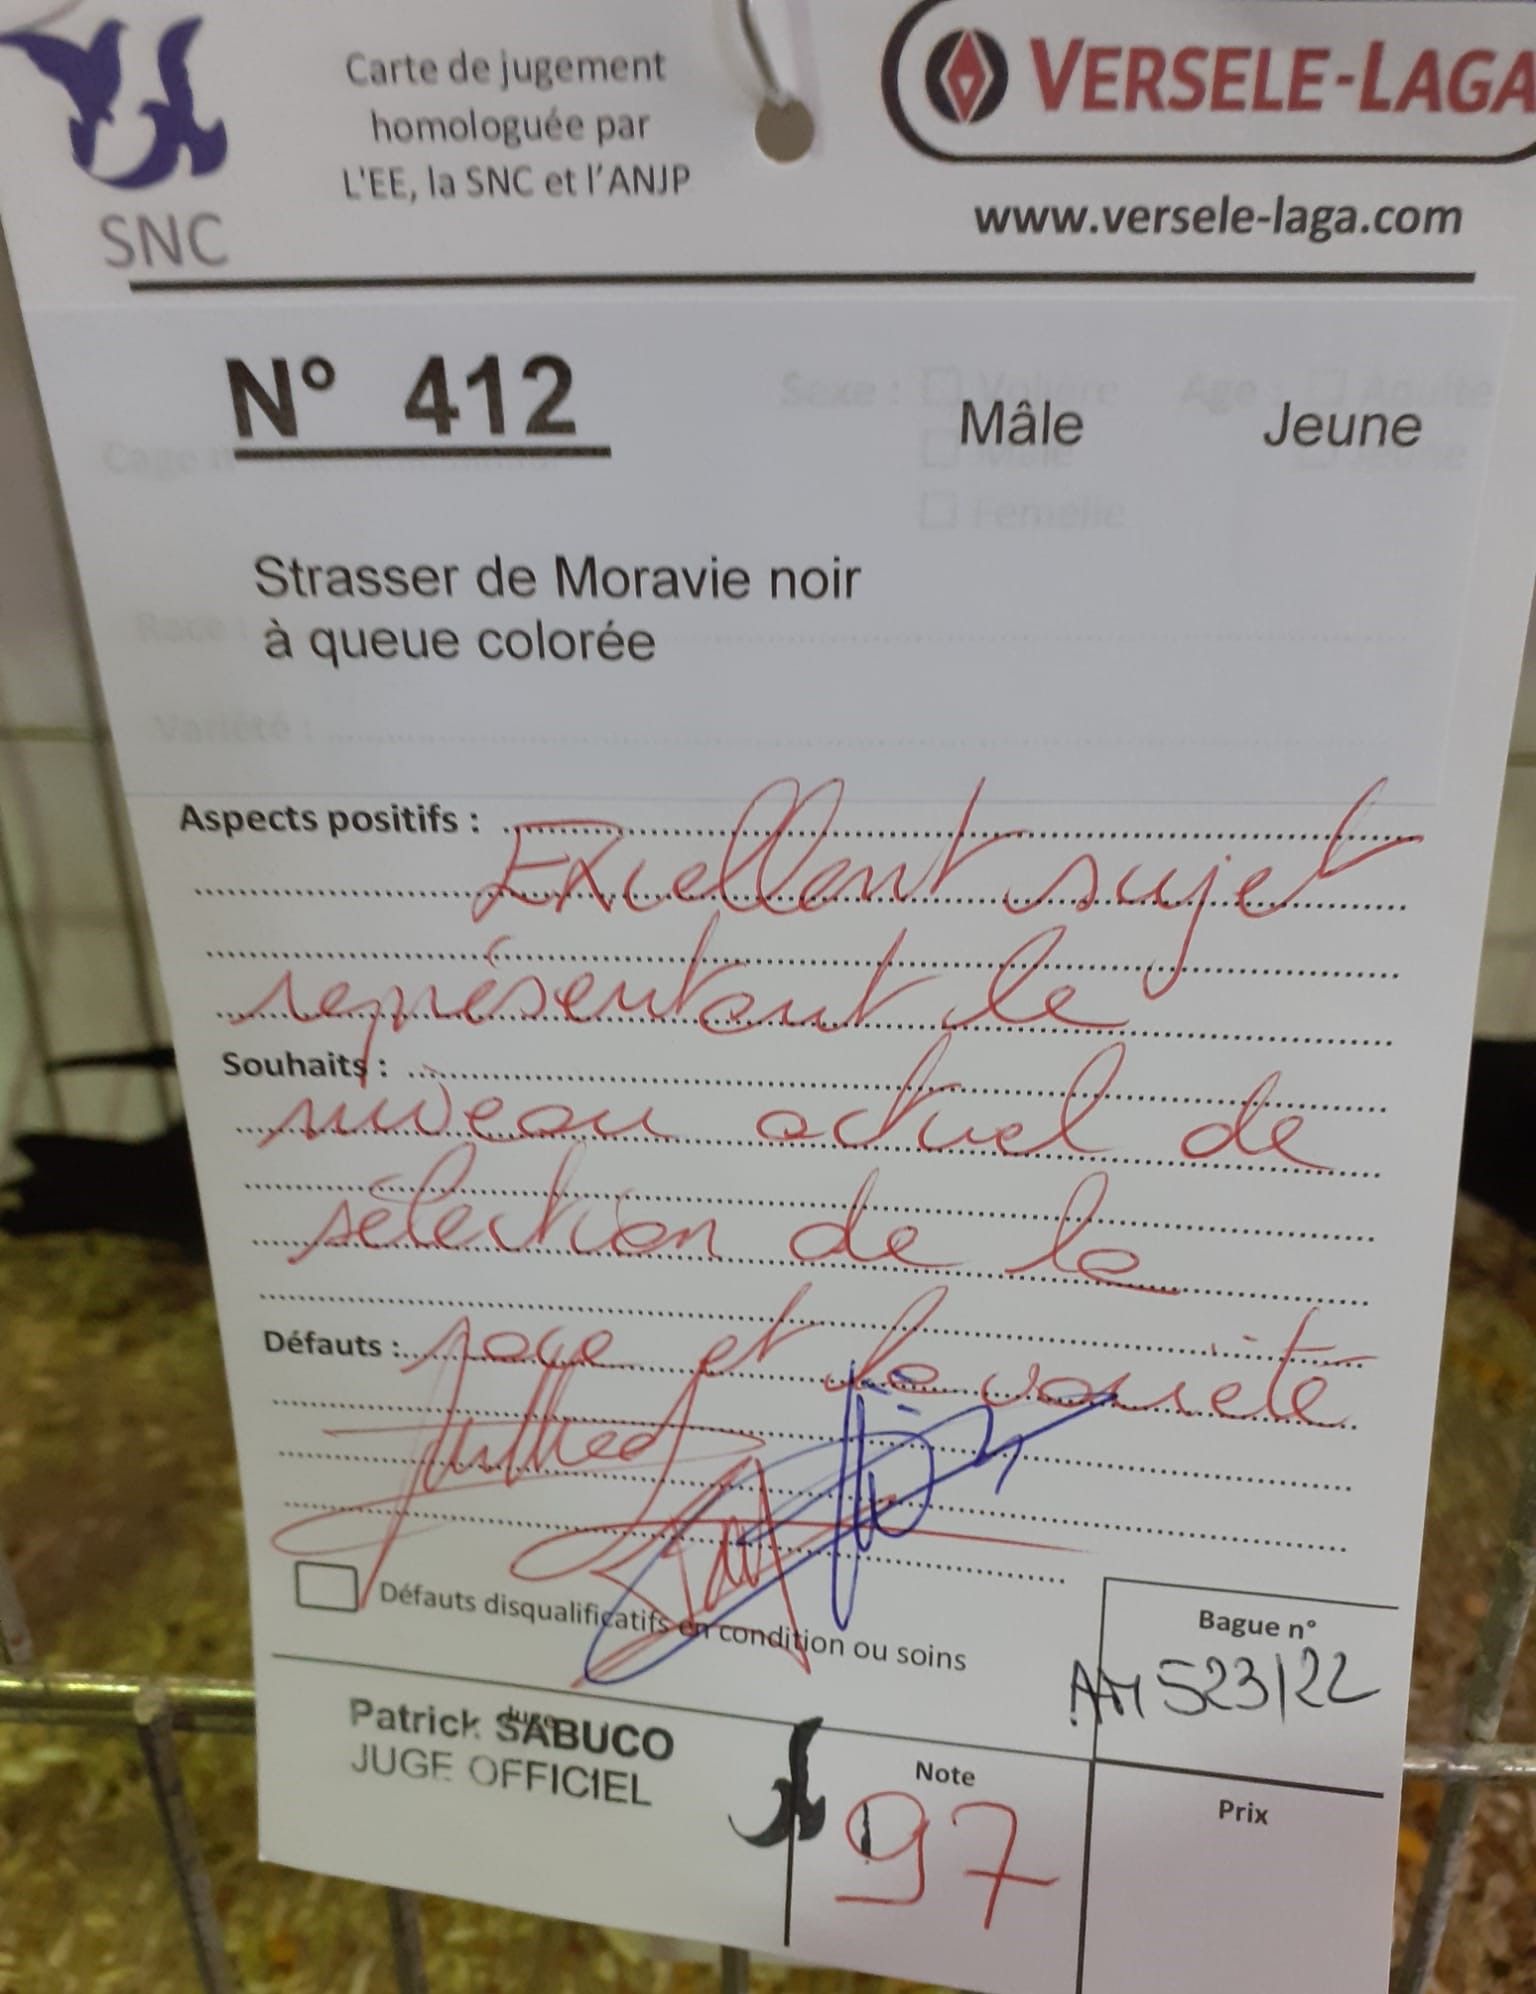 SNC
Carte de jugement
homologuée par
L'EE, la SNC et l'ANJP
VERSELE-LAGA
www.versele-laga.com
N° 412
Mâle Jeune
Sexe : Volière
Mâle
Femelle
Age : Adulte
Jeune
Cage n°
Strasser de Moravie noir
à queue colorée
Race :
Variété :
Aspects positifs :
Excellent sujet
représentant le
Souhaits :
niveau actuel de
sélection de la
Défauts : race et la variété
Défauts disqualificatifs en condition ou soins
Bague n°
AM 523/22
Juge
Patrick SABUCO
JUGE OFFICIEL
Note
97
Prix